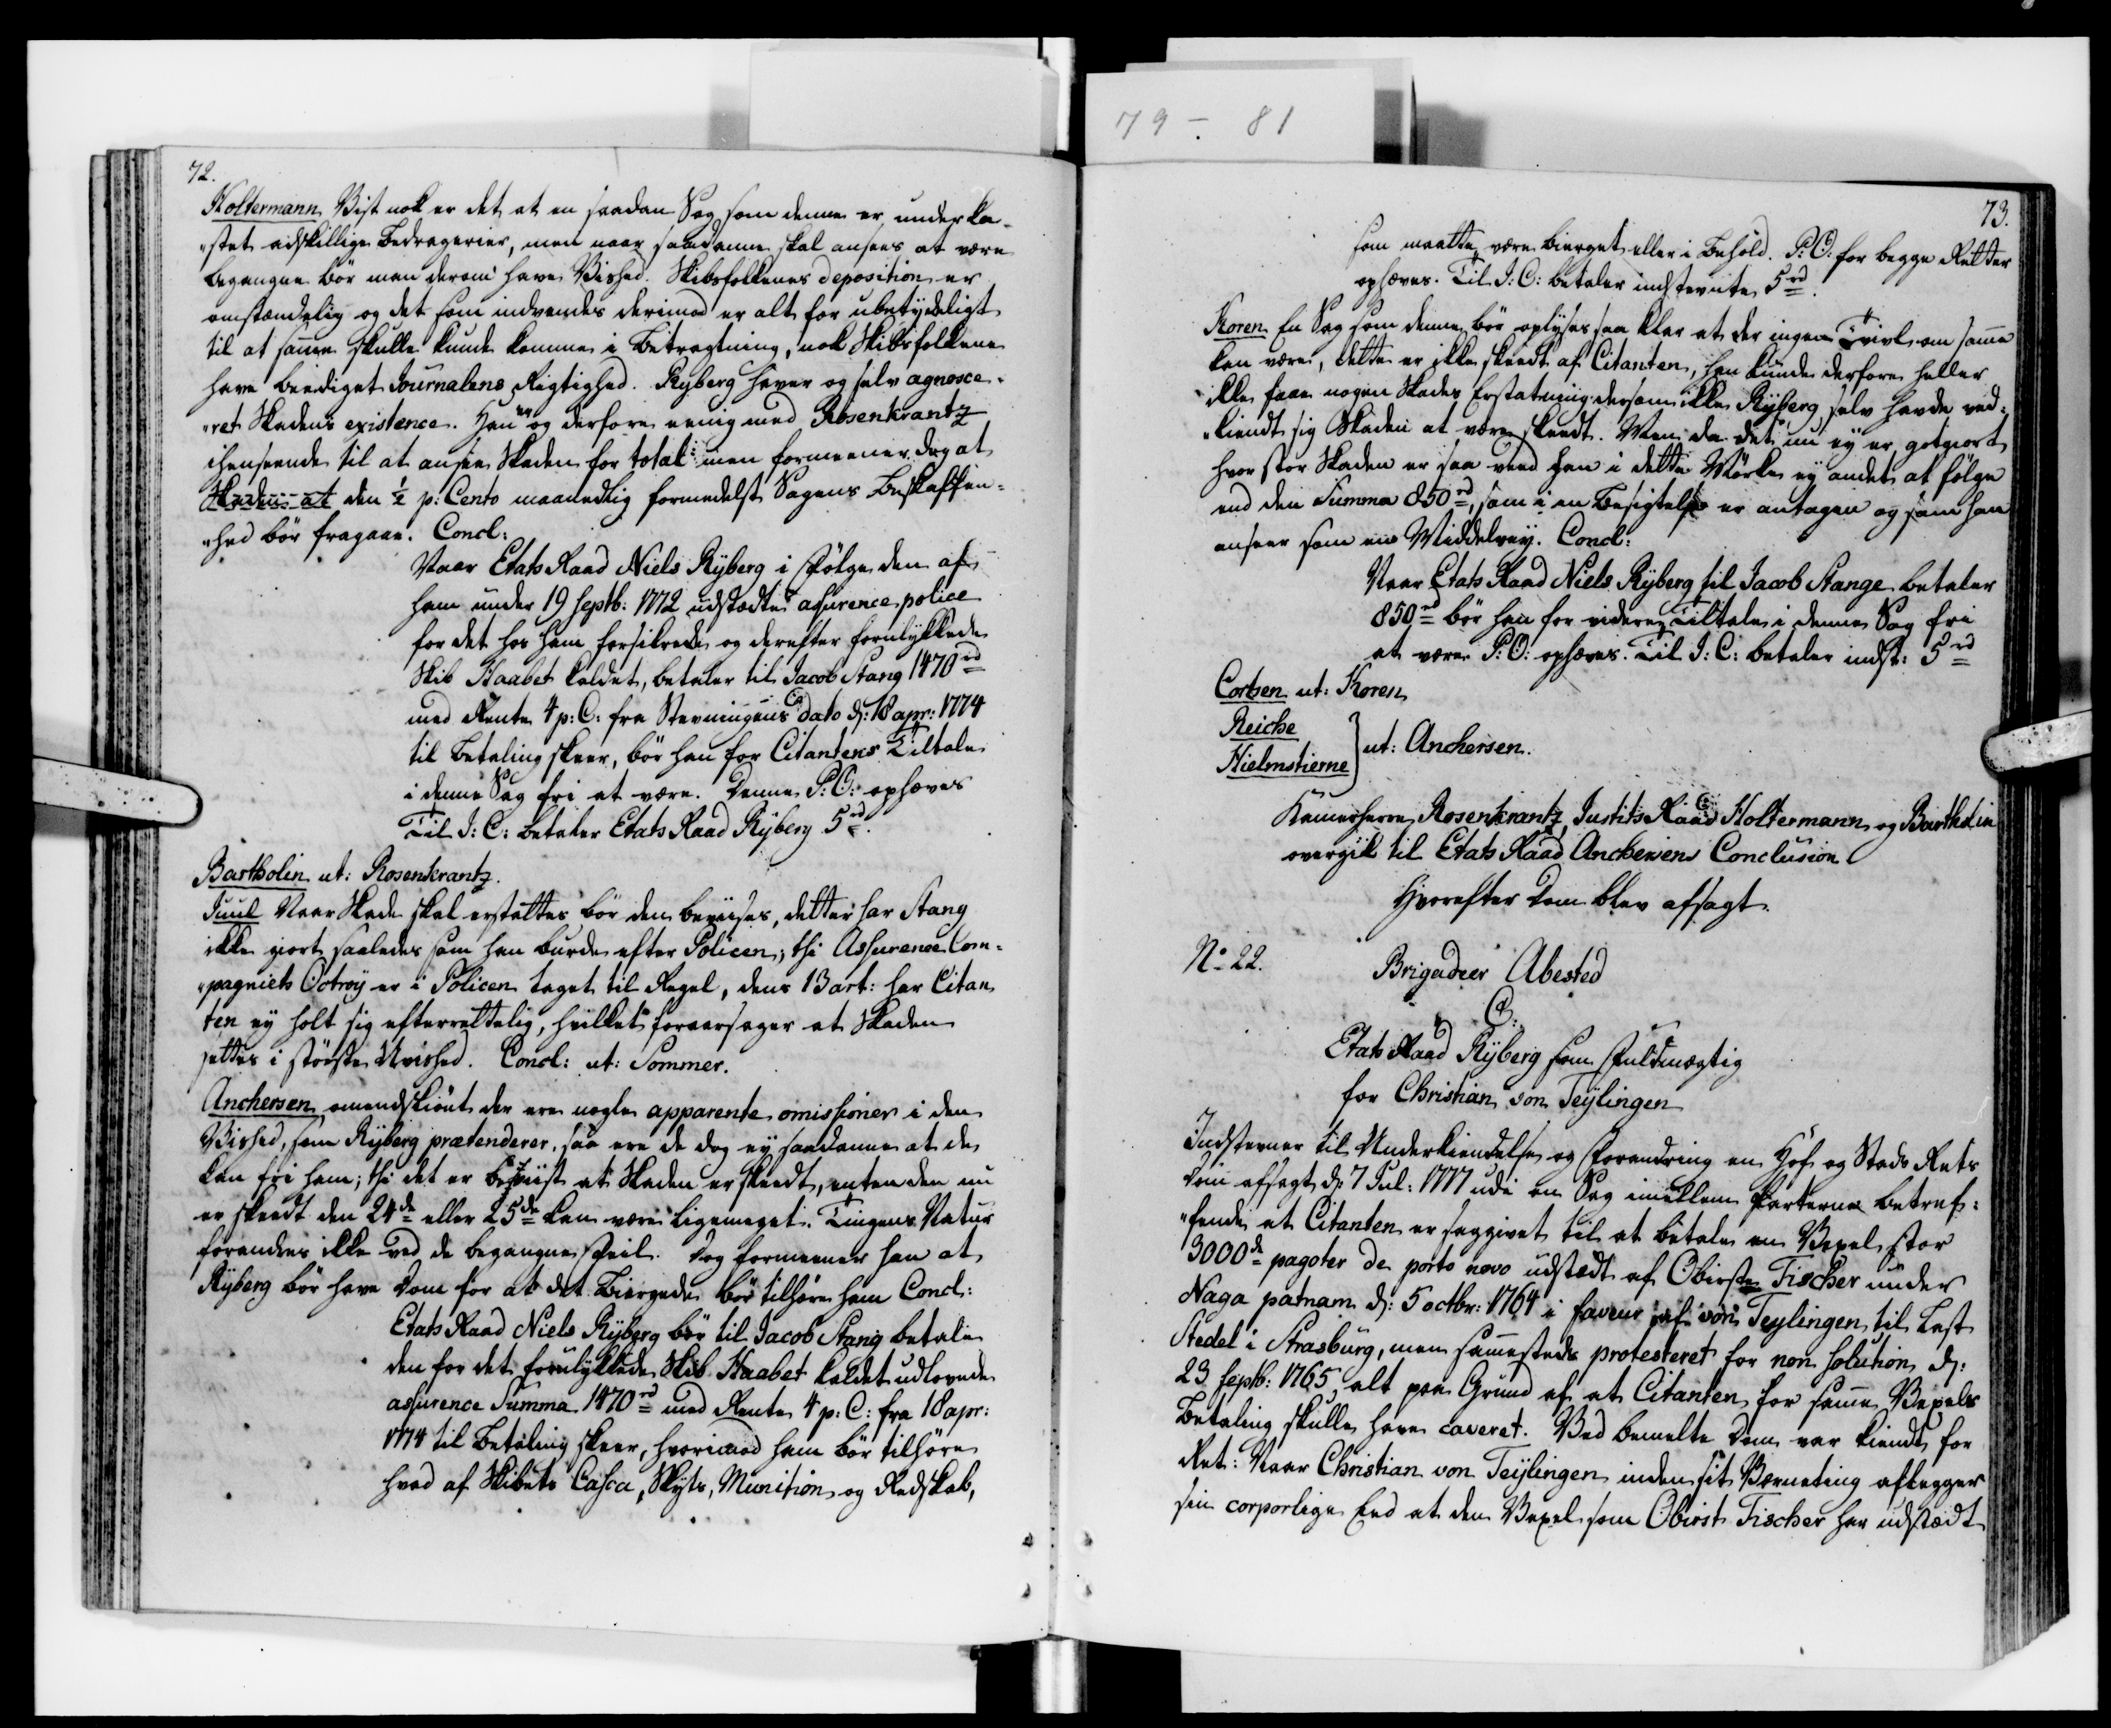 79-81
72.
Holtermann Vist nok er det at en saadan Sag som denne er underka-
"stet adskillige Bedragerier, men naar saadanne skal ansees at være
begangne bør man derom have Vished. Skibsfolkenes deposition er
omstændelig og det som indvendes derimod er alt for ubetydeligt
til at samme skulle kunde komme i Betragtning, nok Skibsfolkene
have beediget Journalens Rigtighed. Ryberg haver og selv agnosce-
"ret Skadens existence. Han er og derfore eenig med Rosenkrantz
i henseende til at ansee Skaden for total men formeener dog at
Skaden at den ½ p: Cento maanedlig formedelst Sagens Beskaffen-
"hed bør fragaae. Concl:
Naar Etats Raad Niels Ryberg i Følge den af
ham under 19 Septb: 1772 udstædte assurence police
for det hos ham forsikrede og derefter forulykkede
Skib Haabet kaldet, betaler til Jacob Stang 1470 rd
med Rente 4 p: C: fra Stevningens dato d: 18 apr: 1774
til Betaling skeer, bør han for Citantens Tiltale
i denne Sag fri at være. Denne P: O: ophæves
Til J: C: betaler Etats Raad Ryberg 5 rd.
Bartholin ut: Rosenkrantz.
Juul Naar Skade skal erstattes bør den beviises, dette har Stang
ikke giort saaledes som han burde efter Policen; thi Assurence Com-
"pagniets Octroy er i Policen taget til Regel, dens 13 art: har Citan
ten ey holt sig efterrettelig, hvilket foraarsager at Skaden
settes i største Uvished. Concl: ut: Sommer.
Anchersen omendskiønt der ere nogle apparente omissioner i den
Vished, som Ryberg prætenderer, saa ere de dog ey saadanne at de
kan fri ham; thi det er beviist at Skaden er skeedt, enten den nu
er skeedt den 24de eller 25de kan være ligemeget. Tingens Natur
forandres ikke ved de begangne Feil. Dog formeener han at
Ryberg bør have Dom for at det Biergede bør tilhøre ham Concl:
Etats Raad Niels Ryberg bør til Jacob Stang betale
den for det forulykkede Skib Haabet kaldet udlovede
assurence Summa 1470 rd med Rente 4 p: C: fra 18 apr:
1774 til Betaling skeer, hvorimod ham bør tilhøre
hvad af Skibets Casca, Skyts, Munition og Redskab,
73.
som maatte være bierget eller i Behold. P: O: for begge Retter
ophæves. Til J: C: betaler indstevnte 5 rd.
Koren En Sag som denne bør oplyses saa klar at der ingen Tvivl om samme
kan være, dette er ikke skeedt af Citanten, han kunde derfore heller
ikke faae nogen Skades Erstatning dersom ikke Ryberg selv havde ved-
"kiendt sig Skaden at være skeedt. Men da det nu ey er gotgiort
hvor stor Skaden er saa veed han i dette Mørke ey andet at følge
end den Summa 850 rd, som i en Besigtelse er antagen og som han
anseer som en Middelvey. Concl:
Naar Etats Raad Niels Ryberg til Jacob Stange betaler
850 rd bør han for videre Tiltale i denne Sag fri
at være P: O: ophæves. Til J: C: betaler indst: 5 rd
Cortsen ut: Koren
Reiche
Hielmstierne } ut: Anchersen.
Kamerherre Rosenkrantz, Justits Raad Holtermann og Bartholin
overgik til Etats Raad Anchersens Conclusion
Hvorefter Dom blev afsagt.
No 22. Brigadeer Abested
C:
Etats Raad Ryberg som Fuldmægtig
for Christian von Teylingen
Indstevner til Underkiendelse og Forandring en Hof og Stads Rets
Dom afsagt d: 7 Jul: 1777 udi en Sag imellem Parterne betref-
"fende at Citanten er sagivet til at betale en Vexel stor
3000de pagoter de porto novo udstædt af Obirste Fischer under
Naga patnam d: 5 octbr: 1764 i faveur af von Teylingen til Last
Stedel i Strasburg, men sammesteds protesteret for non solution d:
23 Septb: 1765, alt paa Grund af at Citanten for samme Vexels
Betaling skulle have caveret. Ved bemelte Dom var kiendt for
Ret: Naar Christian von Teylingen inden sit Værneting aflegger
sin corporlige Eed at den Vexel som Obirst Fischer har udstædt